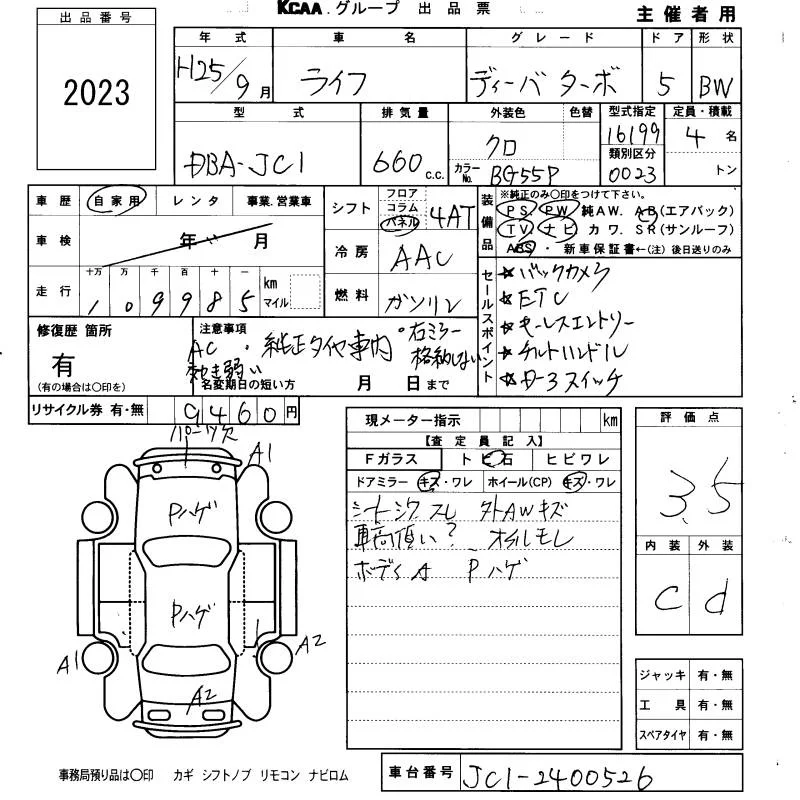 KCAA.グループ 出品票
主催者用
出品番号
2023
年式 車名 グレード ドア 形状
H25/9月 ライフ ディーバ ターボ 5 BW
型式 排気量 外装色 色替 型式指定 定員・積載
DBA-JC1 660c.c. クロ 16199 4名
カラーNo. BG55P 類別区分 0023 トン
車歴 自家用 レンタ 事業.営業車
車検 年 月
走行 十万 万 千 百 十 一
109985 km マイル
シフト フロア コラム パネル 4AT
冷房 AAC
燃料 ガソリン
装備品
※純正のみ○印をつけて下さい。
PS PW 純AW. AB(エアバック)
TV ナビ カワ. SR(サンルーフ)
ABS ・ 新車保証書←(注) 後日送りのみ
セールスポイント
☆バックカメラ
☆ETC
☆キーレスエントリー
☆チルトハンドル
☆オートエアコン
修復歴 箇所
有
(有の場合は○印を)
注意事項
AC 効き弱い
・純正タイヤ車内
・右ミラー格納しない
名変期日の短い方 月 日まで
リサイクル券 有・無 9460円
パーツ欠
A1
Pハゲ
Pハゲ
A1
A2
A2
現メーター指示 km
【査定員記入】
Fガラス トビ石 ヒビワレ
ドアミラー キズ・ワレ ホイール(CP) キズ・ワレ
シートシワ スレ 外AWキズ
オイルモレ
ボディA Pハゲ
評価点
3.5
内装 外装
C d
ジャッキ 有・無
工具 有・無
スペアタイヤ 有・無
事務局預り品は○印 カギ シフトノブ リモコン ナビロム
車台番号 JC1-2400526